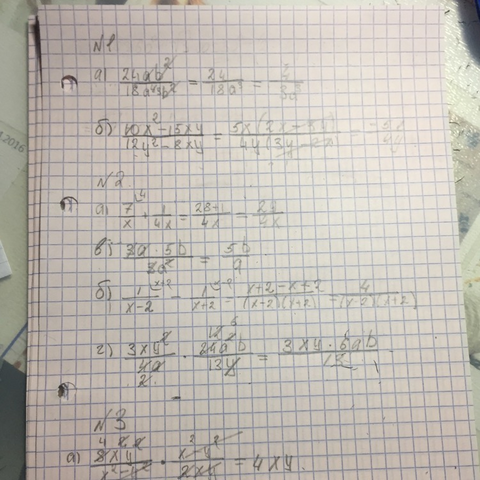 N1
а) 24ab² / 18a⁴b² = 24 / 18a³ = 4 / 3a³
б) 10x² - 15xy / 12y² - 8xy = 5x(2x - 3y) / 4y(3y - 2x) = -5x / 4y
N2
а) 7 / x + 1 / 4x = 28+1 / 4x = 29 / 4x
в) 3a · 5b / 3a² = 5b / a
б) 1 / x-2 - 1 / x+2 = x+2-x+2 / (x-2)(x+2) = 4 / (x-2)(x+2)
г) 3xy² / 4a · 24a²b / 13y = 3xy · 6ab / 13
N3
а) 8xy / x²-y² · x²-y² / 2xy = 4xy